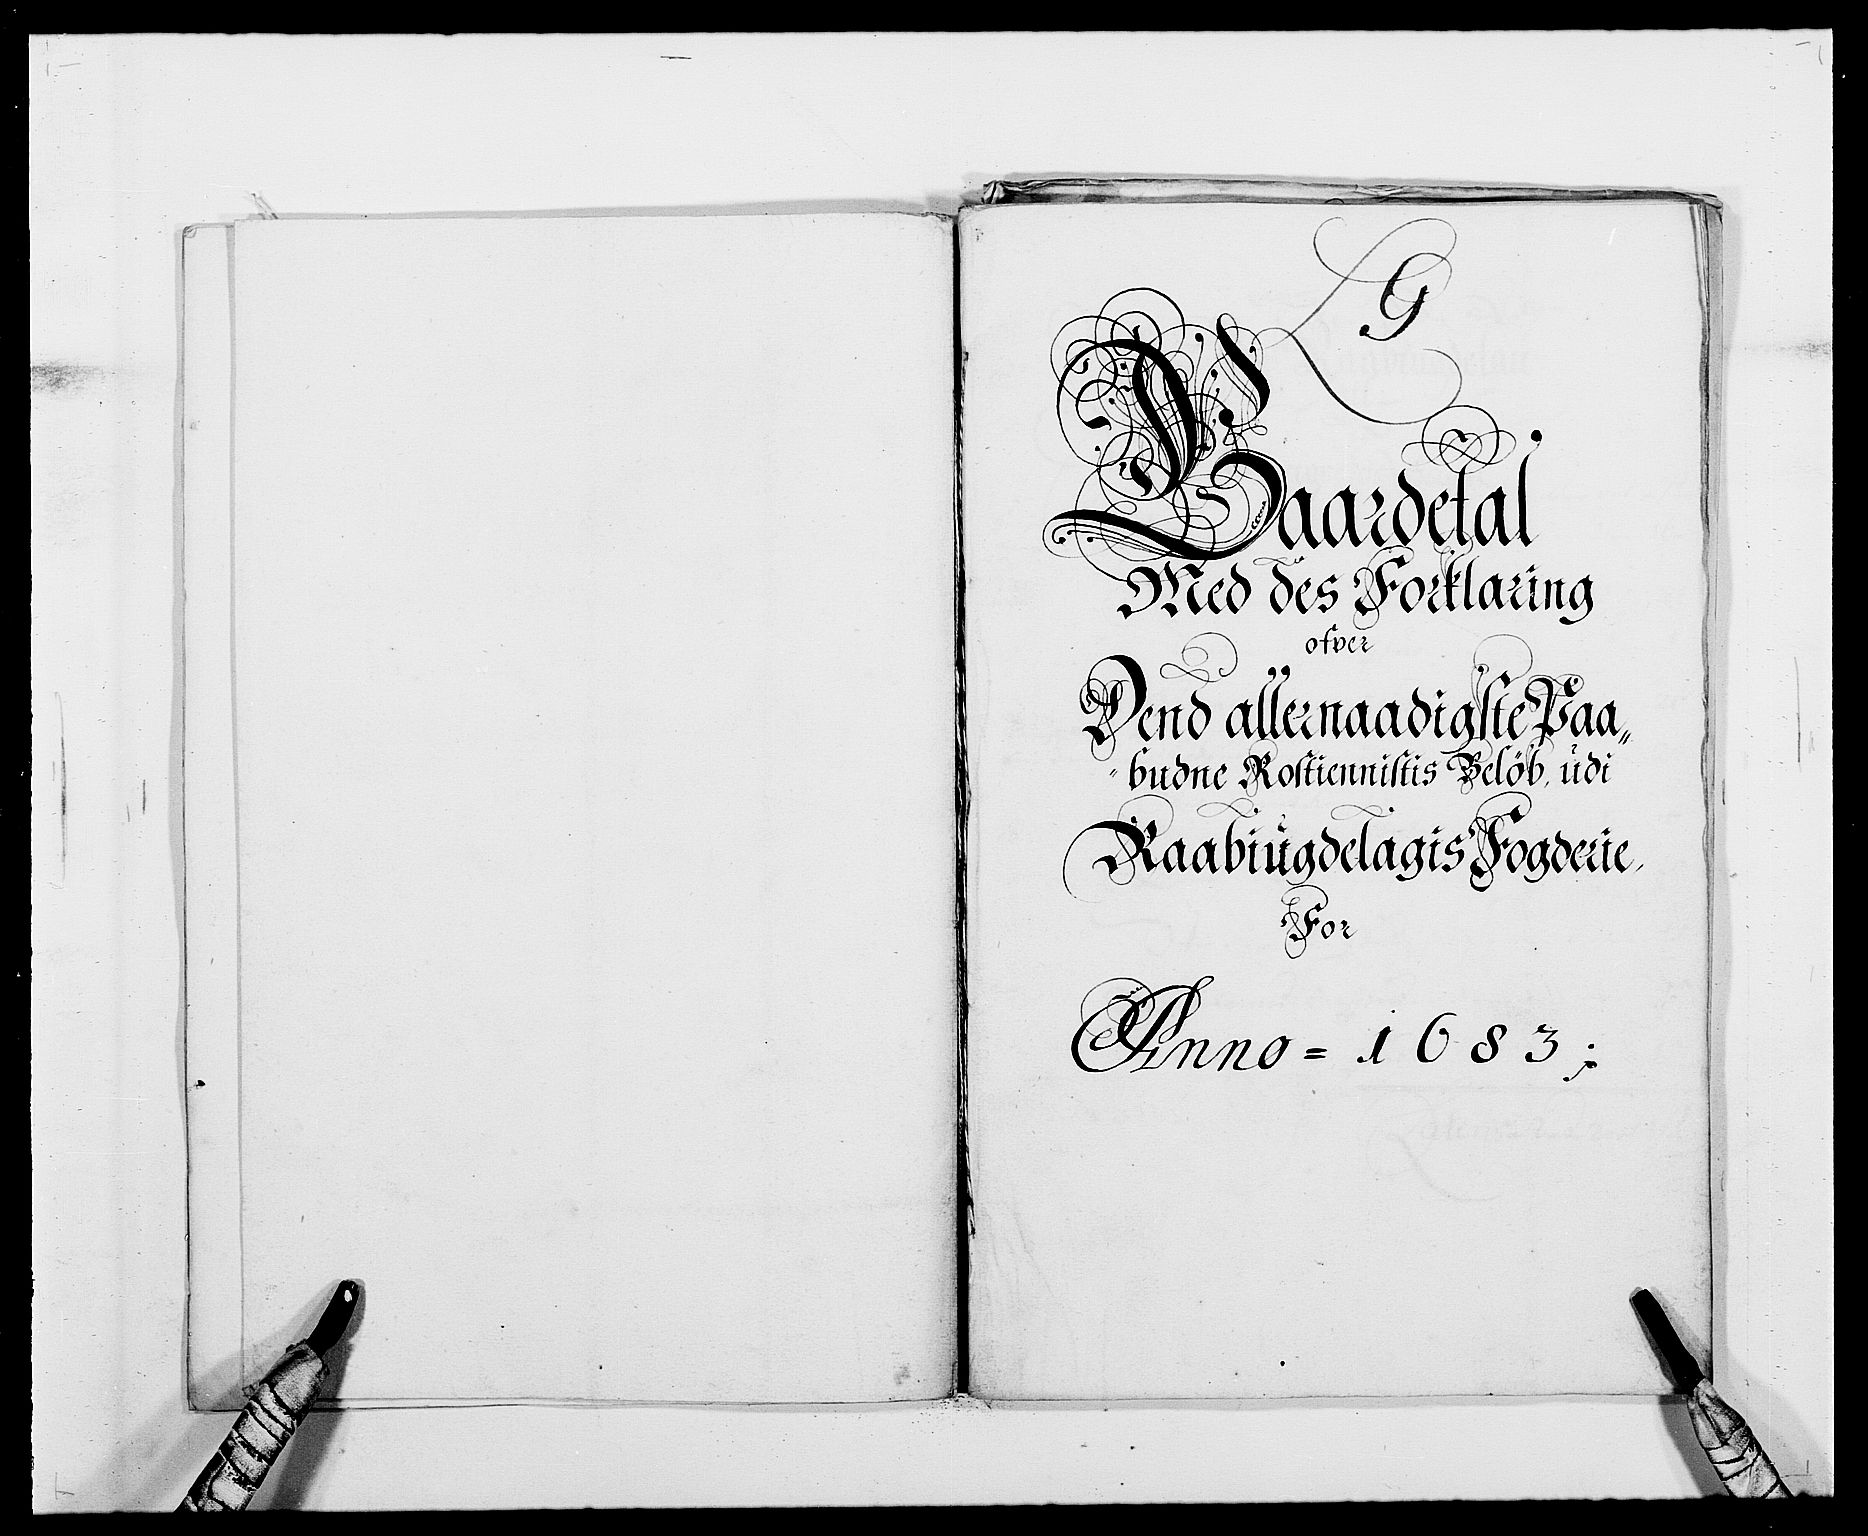 L G
Gaardetal
Med des Forklaring
ofver
Dend allernaadigste Paa„
"budne Rostiennistis Belöb, udi
Raabiugdelagis Fogderie,
For
Anno = 1683;